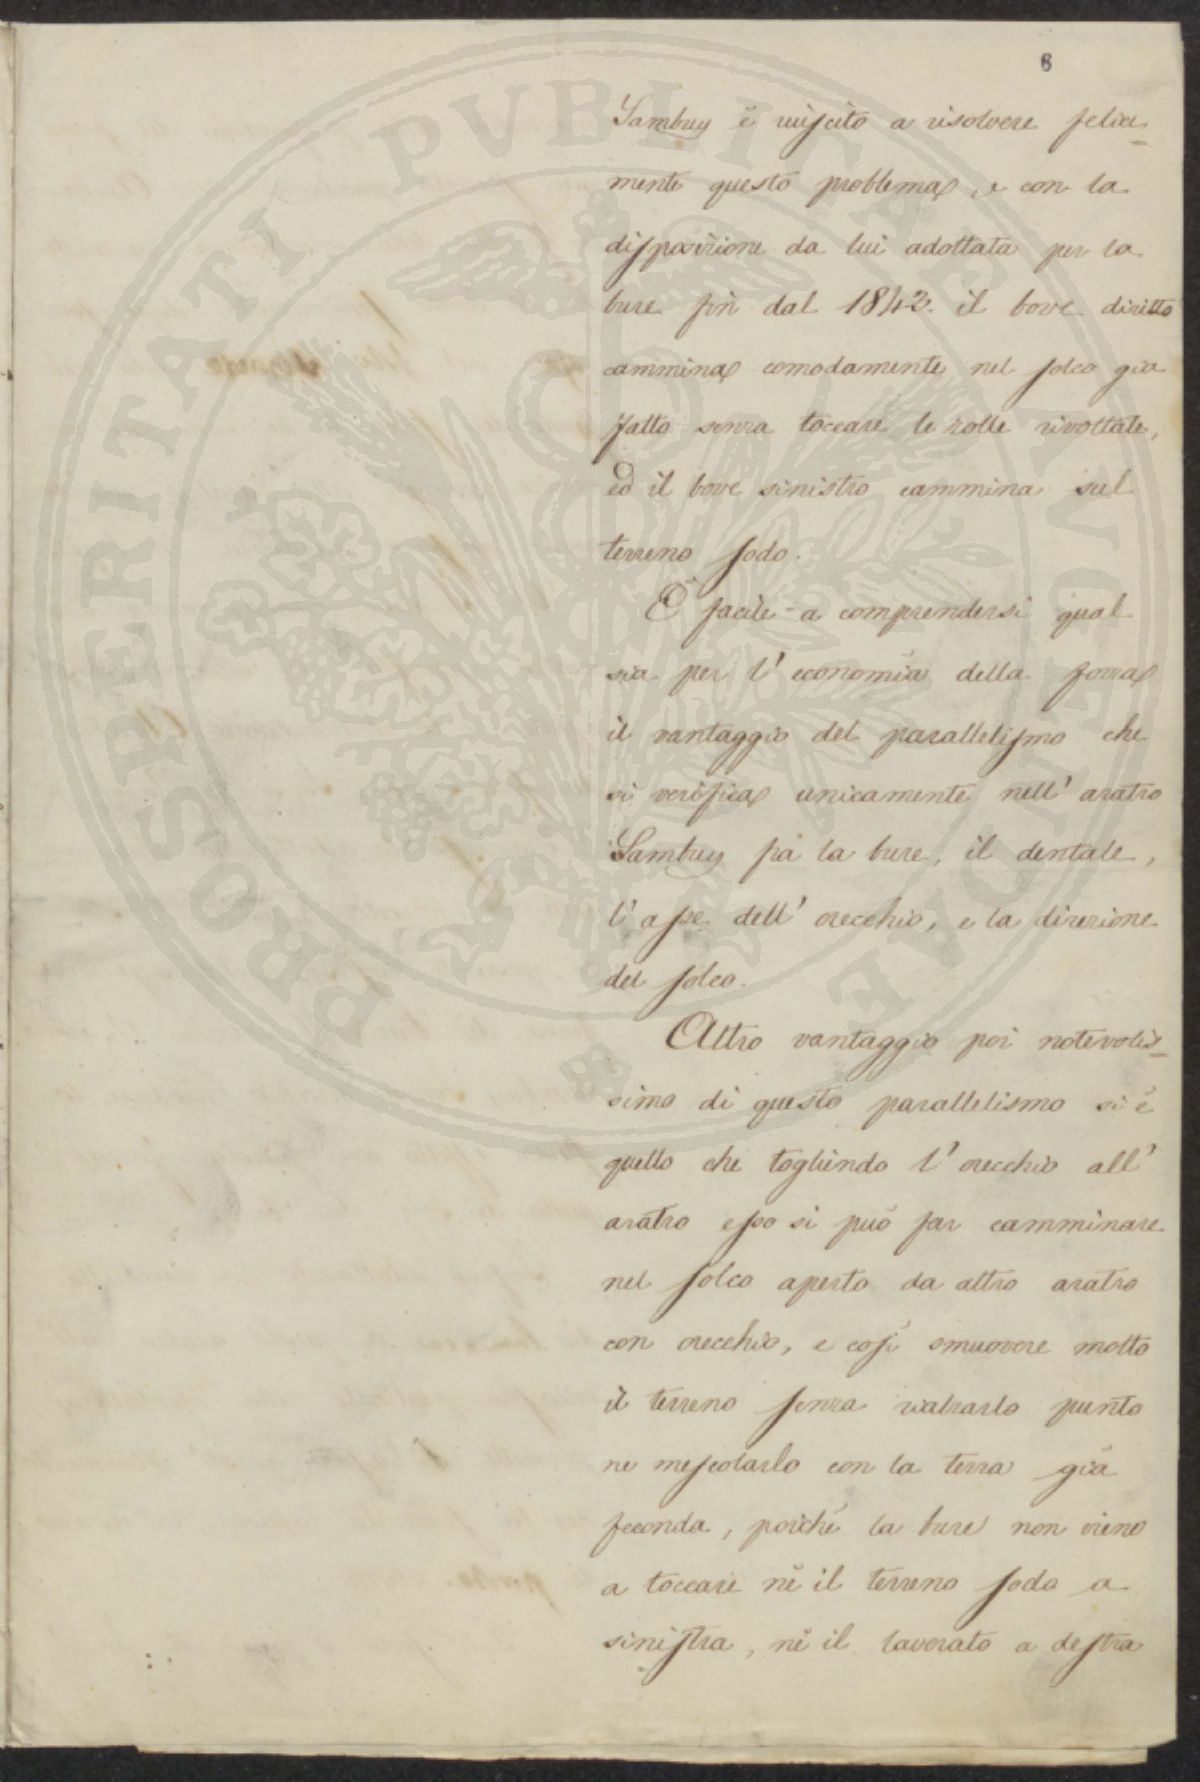 6
Sambuy è riuscito a risolvere felice-
mente questo problema, e con la
disposizione da lui adottata per la
bure fin dal 1842. il bove diritto
cammina comodamente nel solco già
fatto senza toccare le zolle rivoltate,
ed il bove sinistro cammina sul
terreno sodo.
È facile a comprendersi qual
sia per l'economia della forza
il vantaggio del parallelismo che
si verifica unicamente nell'aratro
Sambuy fra la bure, il dentale,
l'asse dell'orecchio, e la direzione
del solco.
Altro vantaggio poi notevolis-
simo di questo parallelismo si è
quello che togliendo l'orecchio all'
aratro esso si può far camminare
nel solco aperto da altro aratro
con orecchio, e così smuovere molto
il terreno senza rialzarlo punto
ne mescolarlo con la terra già
feconda, poichè la bure non viene
a toccare nè il terreno sodo a
sinistra, nè il lavorato a destra
PROSPERITATI PVBLICAE AVGENDAE